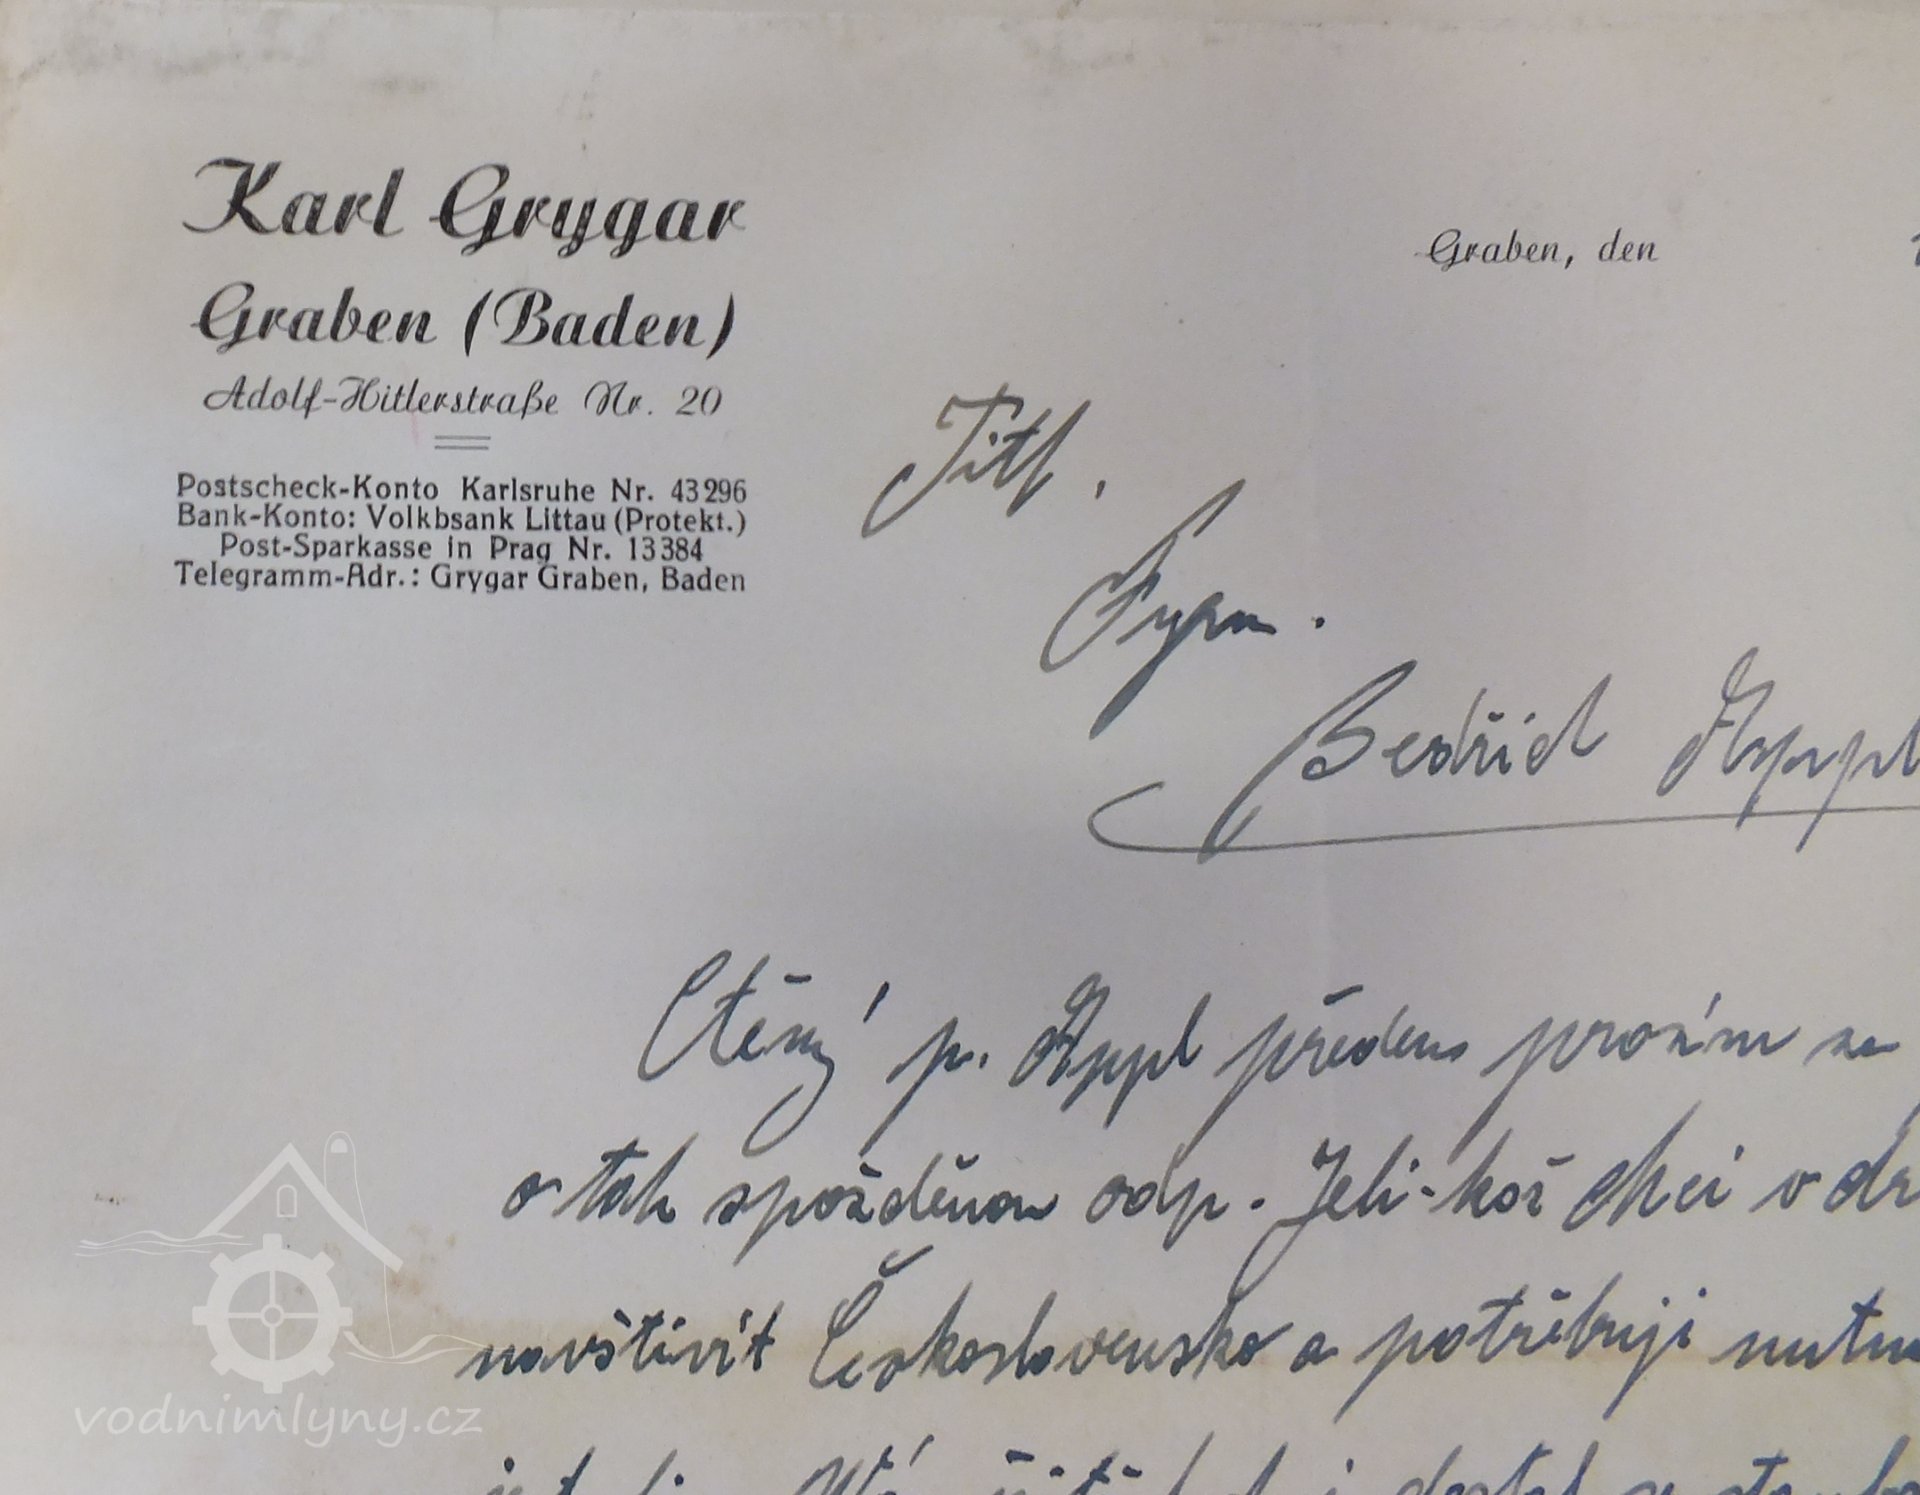 Karl Grygar
Graben (Baden)
Adolf-Hitlerstraße Nr. 20
Postscheck-Konto Karlsruhe Nr. 43296
Bank-Konto: Volkbsank Littau (Protekt.)
Post-Sparkasse in Prag Nr. 13384
Telegramm-Adr.: Grygar Graben, Baden
Graben, den
Titl.
Fyrm.
Bedřich Appl
Ctěný p. Appl předem prosím za
o tak spožděnou odp. Jeli-kož chci v
navštívit Československo a potřebuji nutně
vodnimlyny.cz